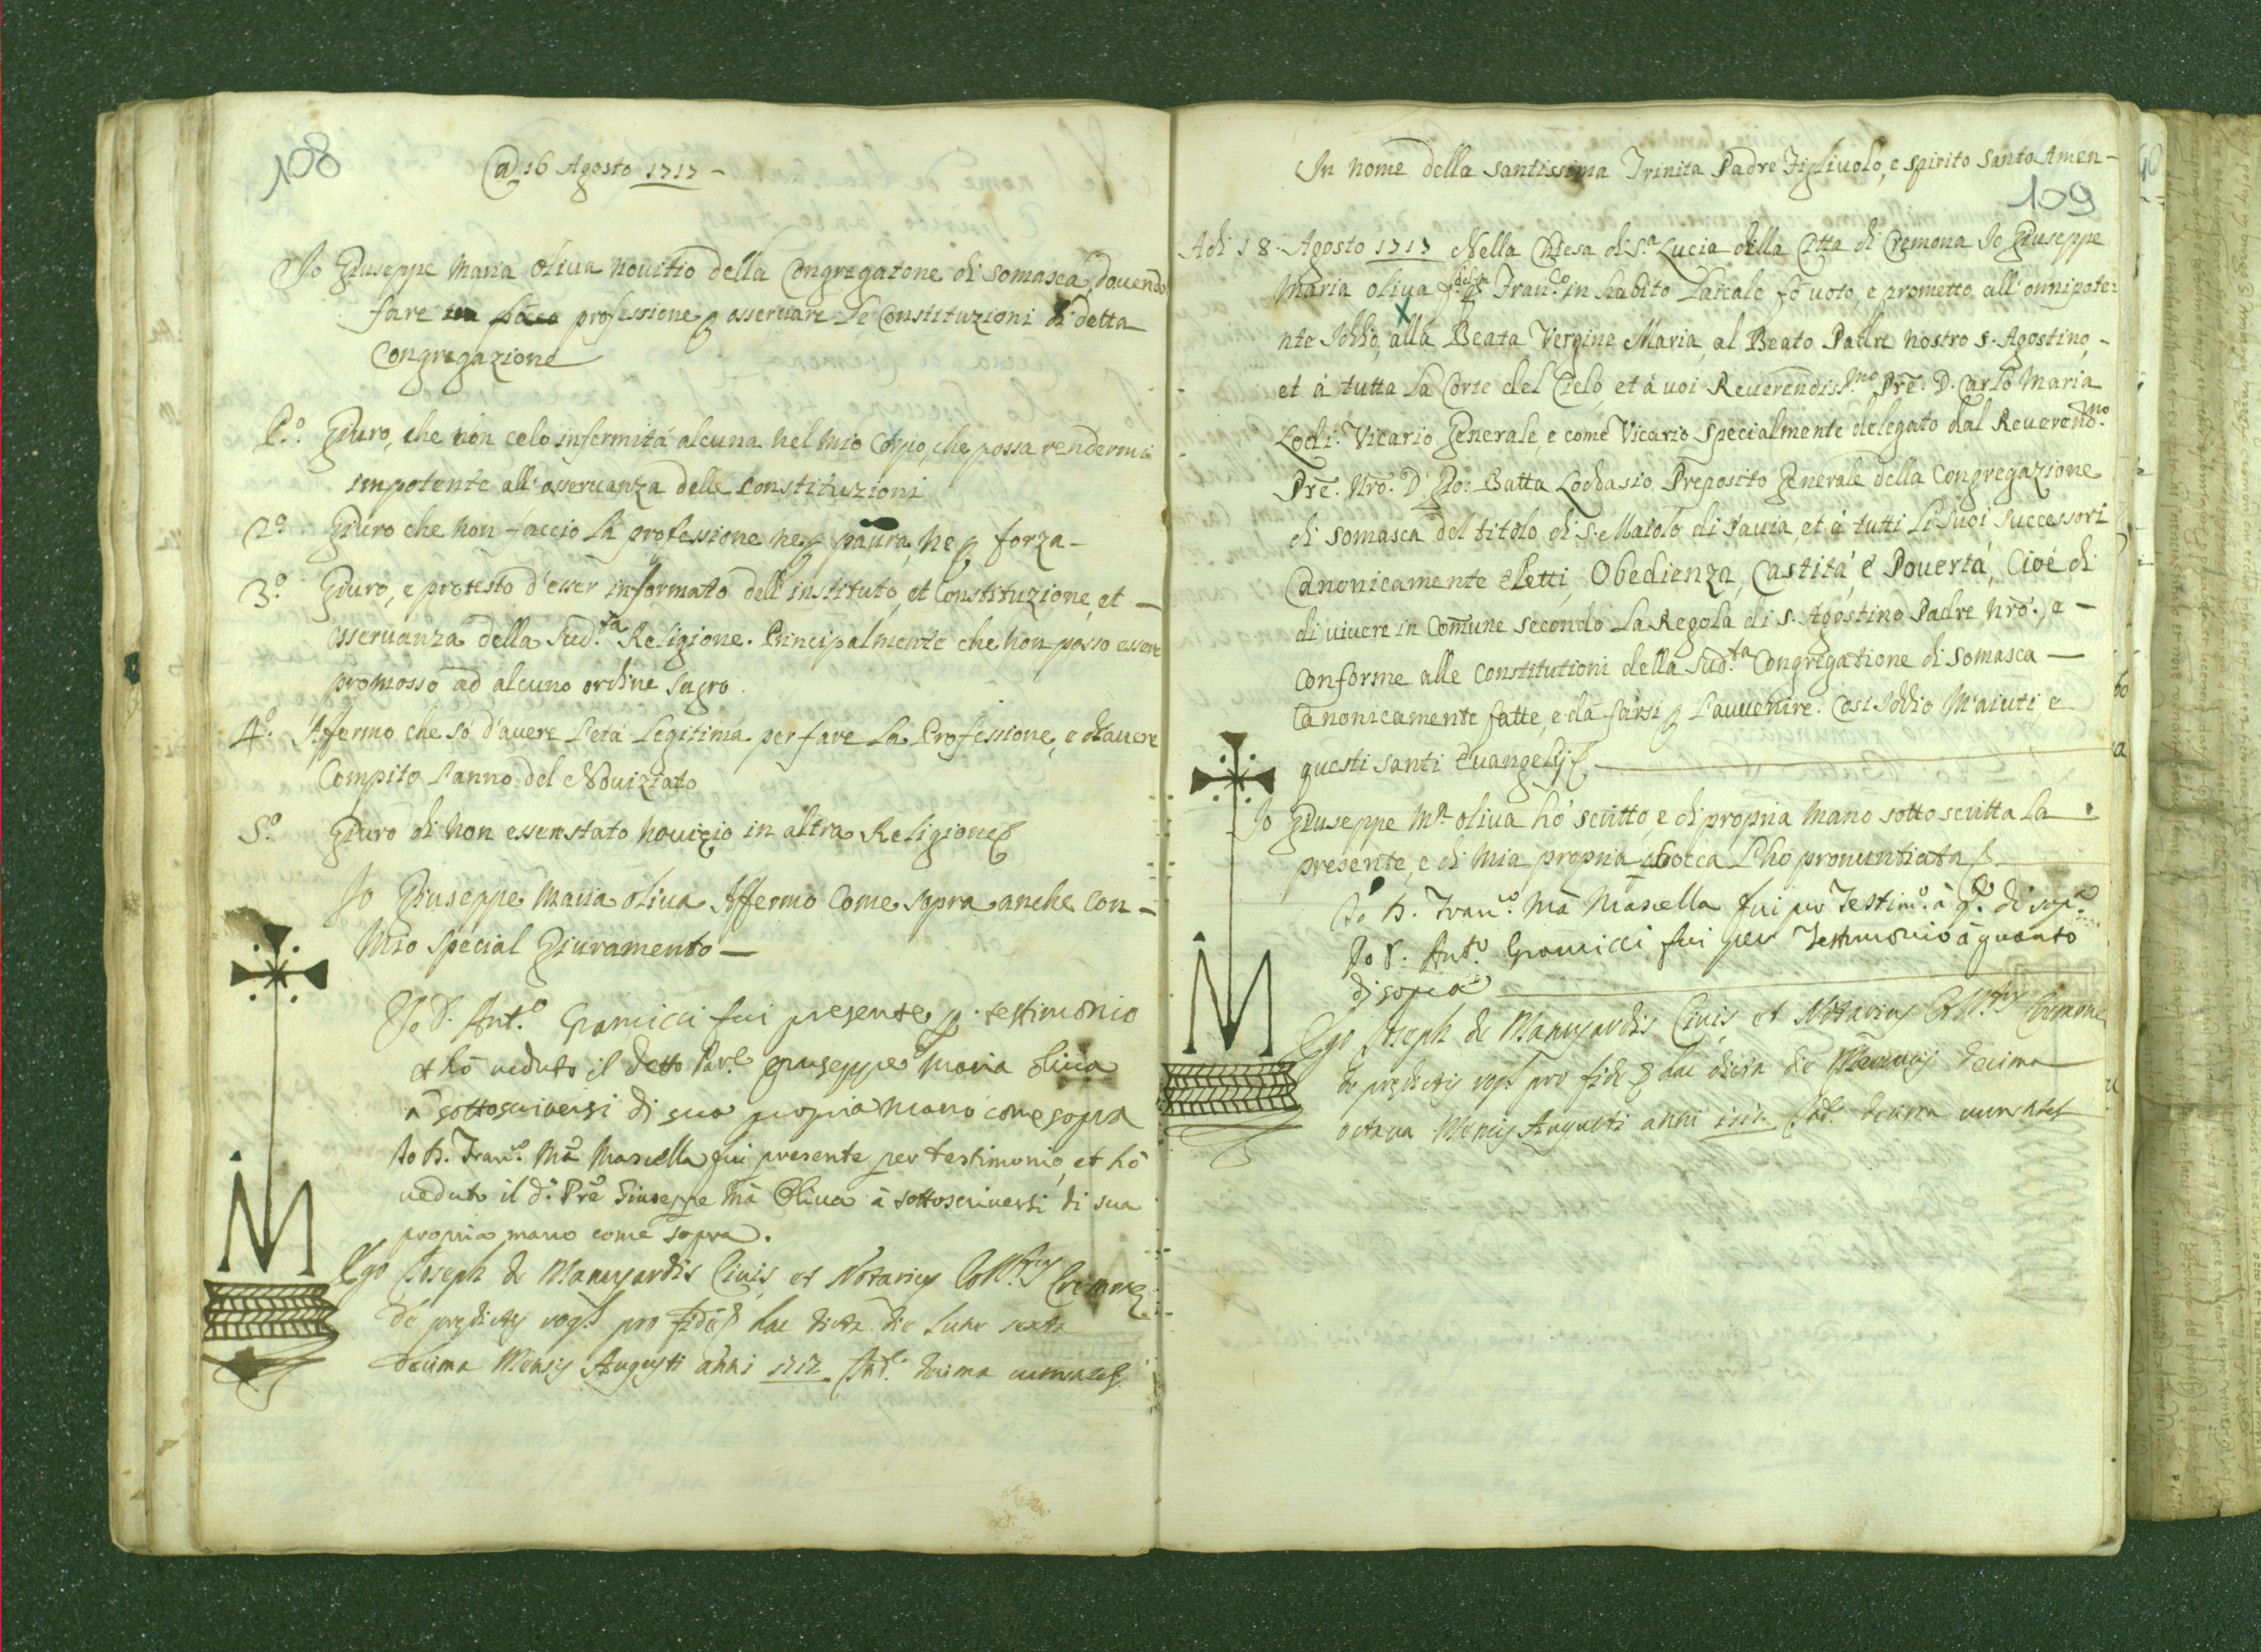 108
Adi 16 Agosto 1717 -
Io Giuseppe Maria Oliva novitio della Congregatone di Somasca, dovendo
fare professione p osservare le Constituzioni di detta
Congregazione
P.º Giuro, che nòn celo infermità alcuna nel mio Corpo, che possa rendermi
impotente all'osservanza delle Constituzioni
2º Giuro che non faccio la professione ne p paura, ne p forza -
3.º Giuro, e protesto d'esser informato dell'instituto, et Constituzione, et -
osservanza della Sud.ta Religione. Principalmente che non posso essere
promosso ad alcuno ordine sagro.
4º. Affermo che sò d'avere l'età Legitima per fare la Professione, e d'avere
Compito l'anno del Noviziato
5.º Giuro di non esser stato novizio in altra Religione
Io Giuseppe Maria Oliva Affermo Come sopra anche con -
mio special Giuramento -
Io D. Ant.º Gramicci fui presente p. testimonio
et hò veduto il detto Giuseppe Maria Oliva
à sottoscriversi di sua propria mano come sopra
Io Fran.º Mª Masnella fui presente per testimonio, et hò
veduto il d.º Giuseppe Mª Oliva à sottoscriversi di sua
propria mano come sopra.
Ego Joseph de Civis, et Notarius Cremone
de predictis rog.s pro fide hac dicta die Lune sexta
decima Mensis Augusti anni 1717 Ind.e decima
M
In nome della santissima Trinita Padre Figlivolo, e spirito Santo Amen -
109
Adi 18. Agosto 1717 Nella Chiesa di S.ª Lucia della Citta di Cremona Io Giuseppe
Maria Oliva Fran.co in habito Laicale fò voto, e prometto all'onnipote:
nte Iddio, alla Beata Vergine Maria, al Beato Padre nostro S. Agostino, -
et à tutta la Corte del Cielo, et à voi Reverendiss.mo Pre. D. Carlo Maria
Lodi. Vicario Generale, e come Vicario specialmente delegato dal Reveren.mo
Pre. Nro. D. Gio: Batta Lodvasio Preposito Generale della Congregazione
di Somasca del titolo di S. Maiolo di Pavia, et à tutti li suoi successori
Canonicamente eletti, Obedienza, Castità, è Povertà, Cioè di
di vivere in Comune secondo la Regola di S. Agostino Padre Nro., e -
conforme alle Constitutioni della Sud.ta Congregatione di Somasca -
Canonicamente fatte, e da farsi p l'avvenire. Cosi Iddio m'aiuti, e
questi santi Evangelij
Io Giuseppe Mª Oliva hò scritto, e di propria mano sottoscritta la
presente, e di mia propria bocca l'hò pronuntiata
Io Fran.º Mª Masnella fui per Testim.º à q.to di sop.ª
Io D. Ant.º Gramicci fui per Testimonio à quanto
di sopra
Ego Joseph de Civis, et Notarius Cremone
de predictis rog.s pro fide hac dicta die decima
octava Mensis Augusti anni 1717 Ind.e decima
M